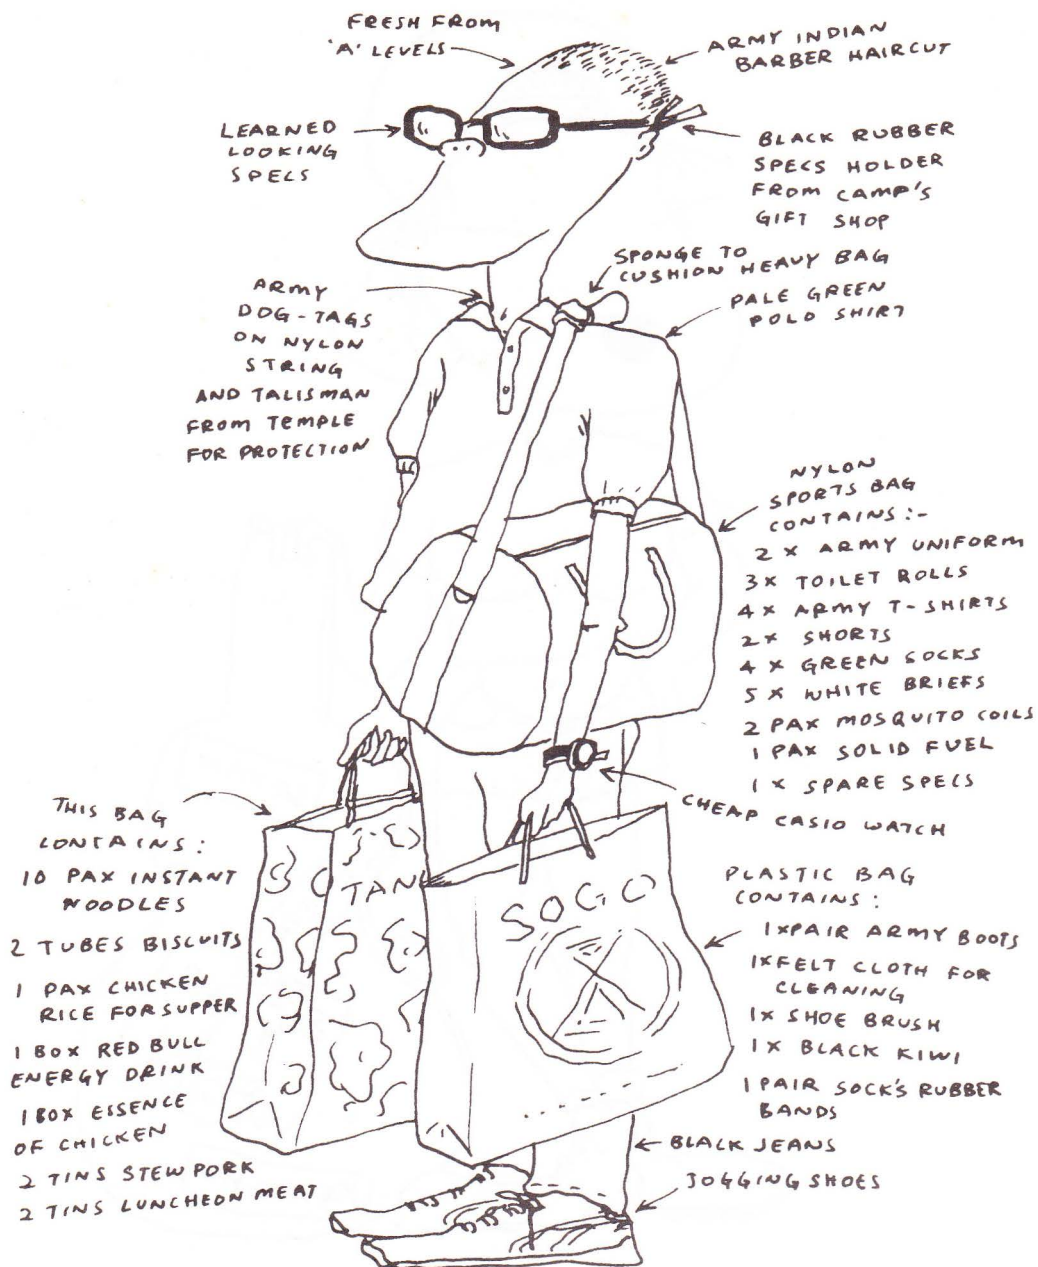 FRESH FROM
'A' LEVELS
ARMY INDIAN
BARBER HAIRCUT
LEARNED
LOOKING
SPECS
BLACK RUBBER
SPECS HOLDER
FROM CAMP'S
GIFT SHOP
SPONGE TO
CUSHION HEAVY BAG
PALE GREEN
POLO SHIRT
ARMY
DOG-TAGS
ON NYLON
STRING
AND TALISMAN
FROM TEMPLE
FOR PROTECTION
NYLON
SPORTS BAG
CONTAINS:-
2 X ARMY UNIFORM
3X TOILET ROLLS
4X ARMY T-SHIRTS
2X SHORTS
4 X GREEN SOCKS
5 X WHITE BRIEFS
2 PAX MOSQUITO COILS
1 PAX SOLID FUEL
1 X SPARE SPECS
CHEAP CASIO WATCH
THIS BAG
CONTAINS:
10 PAX INSTANT
NOODLES
2 TUBES BISCUITS
1 PAX CHICKEN
RICE FOR SUPPER
1 BOX RED BULL
ENERGY DRINK
1 BOX ESSENCE
OF CHICKEN
2 TINS STEW PORK
2 TINS LUNCHEON MEAT
TAN
SOGO
PLASTIC BAG
CONTAINS:
1XPAIR ARMY BOOTS
1XFELT CLOTH FOR
CLEANING
1X SHOE BRUSH
1X BLACK KIWI
1 PAIR SOCK'S RUBBER
BANDS
BLACK JEANS
JOGGING SHOES